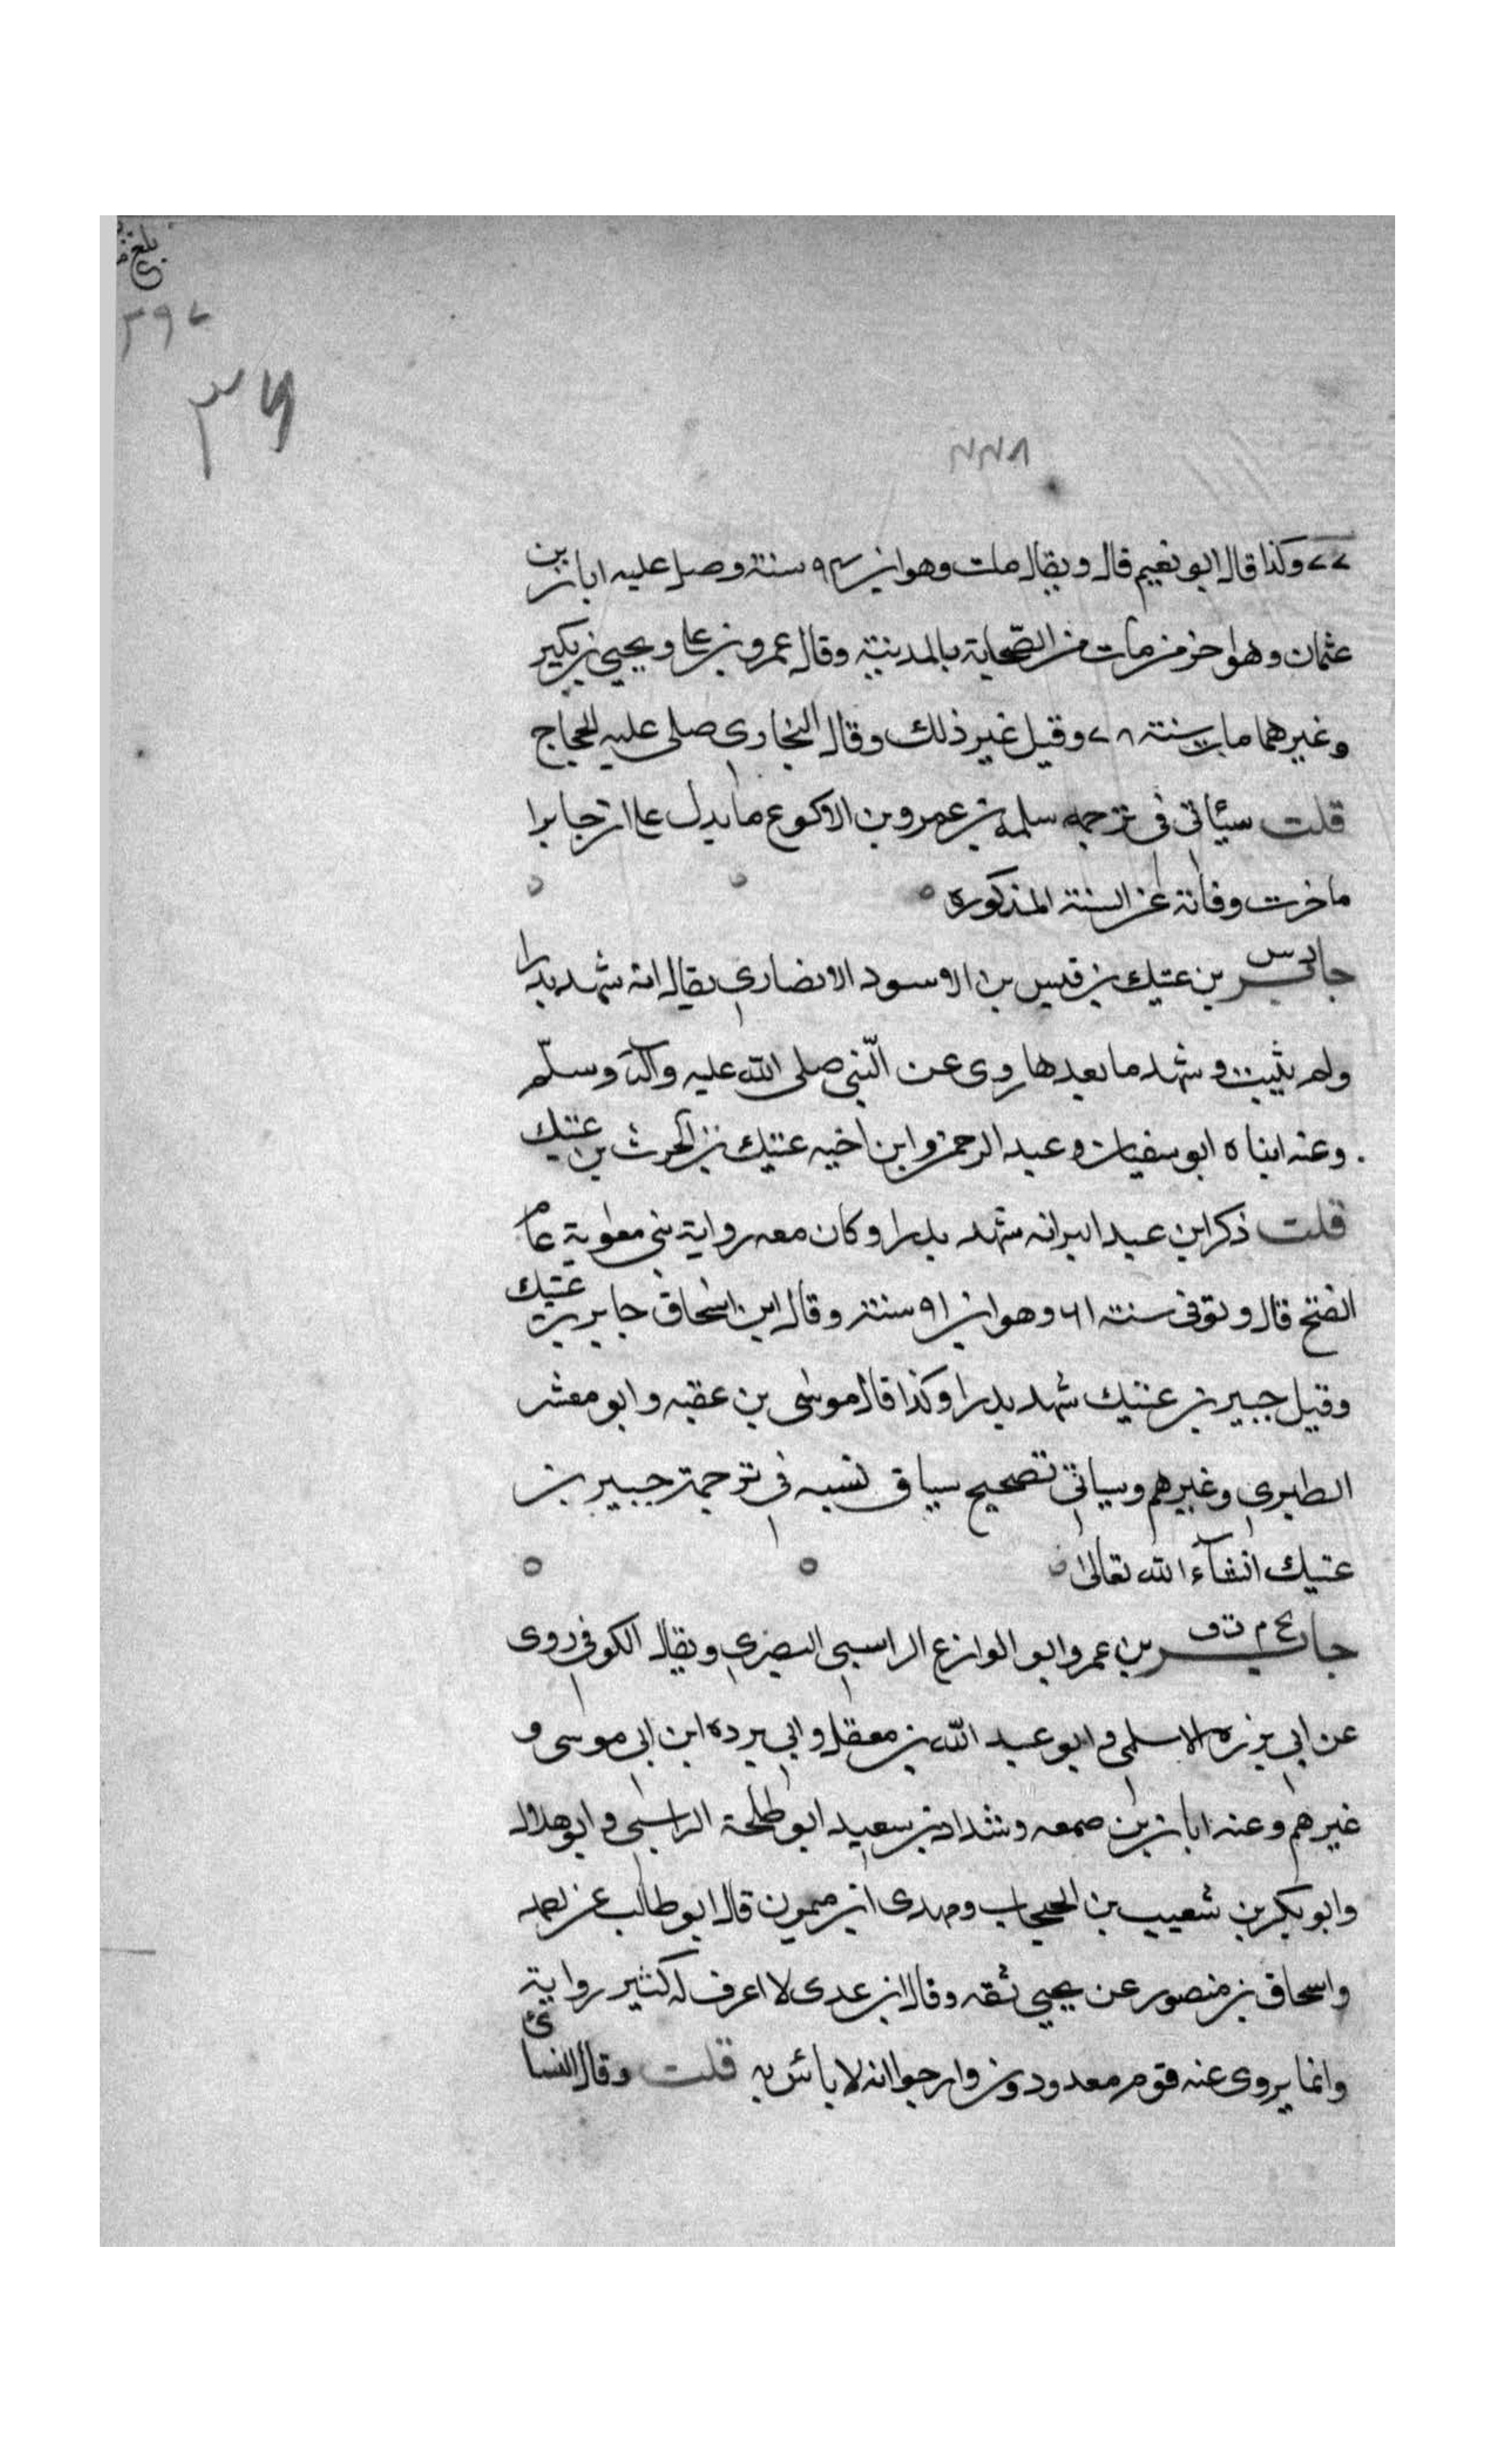 بلغ
٣٩٧
٣٦
٢٢٨
٧٧ وكذا قال ابو نعيم قال ويقال مات وهو ابن ٩٤ سنة وصلى عليه ابان بن
عثمان وهو اخر من مات من الصحابة بالمدينة وقال عمرو بن على ويحيى بن بكير
وغيرهما مات سنة ٧٨ وقيل غير ذلك وقال البخارى صلى عليه الحجاج
قلت سيأتى فى ترجمه سلمه بن عمرو بن الاكوع ما يدل على ان جابرا
تاخرت وفاته عن السنة المذكوره
جابر د س بن عتيك بن قيس بن الاسود الانصارى يقال انه شهد بدرا
ولم يثبت وشهد ما بعدها روى عن النبى صلى الله عليه وآله وسلم
وعنه ابناه ابو سفيان وعبد الرحمن وابن اخيه عتيك بن الحرث بن عتيك
قلت ذكر ابن عبد البر انه شهد بدرا وكان معه رواية بنى معاوية عام
الفتح قال وتوفى سنة ٦١ وهو ابن ٩١ سنة وقال ابن اسحاق جابر بن عتيك
وقيل جبير بن عتيك شهد بدرا وكذا قال موسى بن عقبه وابو معشر
الطبرى وغيرهم وسياتى تصحيح سياق نسبه فى ترجمة جبير بن
عتيك انشآء الله تعالى
جابر بخ م ت ق بن عمرو ابو الوازع الراسبى البصرى ويقال الكوفى روى
عن ابى برزه الاسلمى وابو عبد الله بن معقل وابى برده ابن ابى موسى و
غيرهم وعنه ابان بن صمعه وشداد بن سعيد ابو طلحة الراسبى وابو هلال
وابو بكر بن شعيب بن الحبحاب ومهدى ابن ميمون قال ابو طالب عن احمد
واسحاق بن منصور عن يحيى ثقه وقال ابن عدى لا اعرف له كثير رواية
وانما يروى عنه قوم معدودون وارجوا انه لا بائس به قلت وقال النسائى